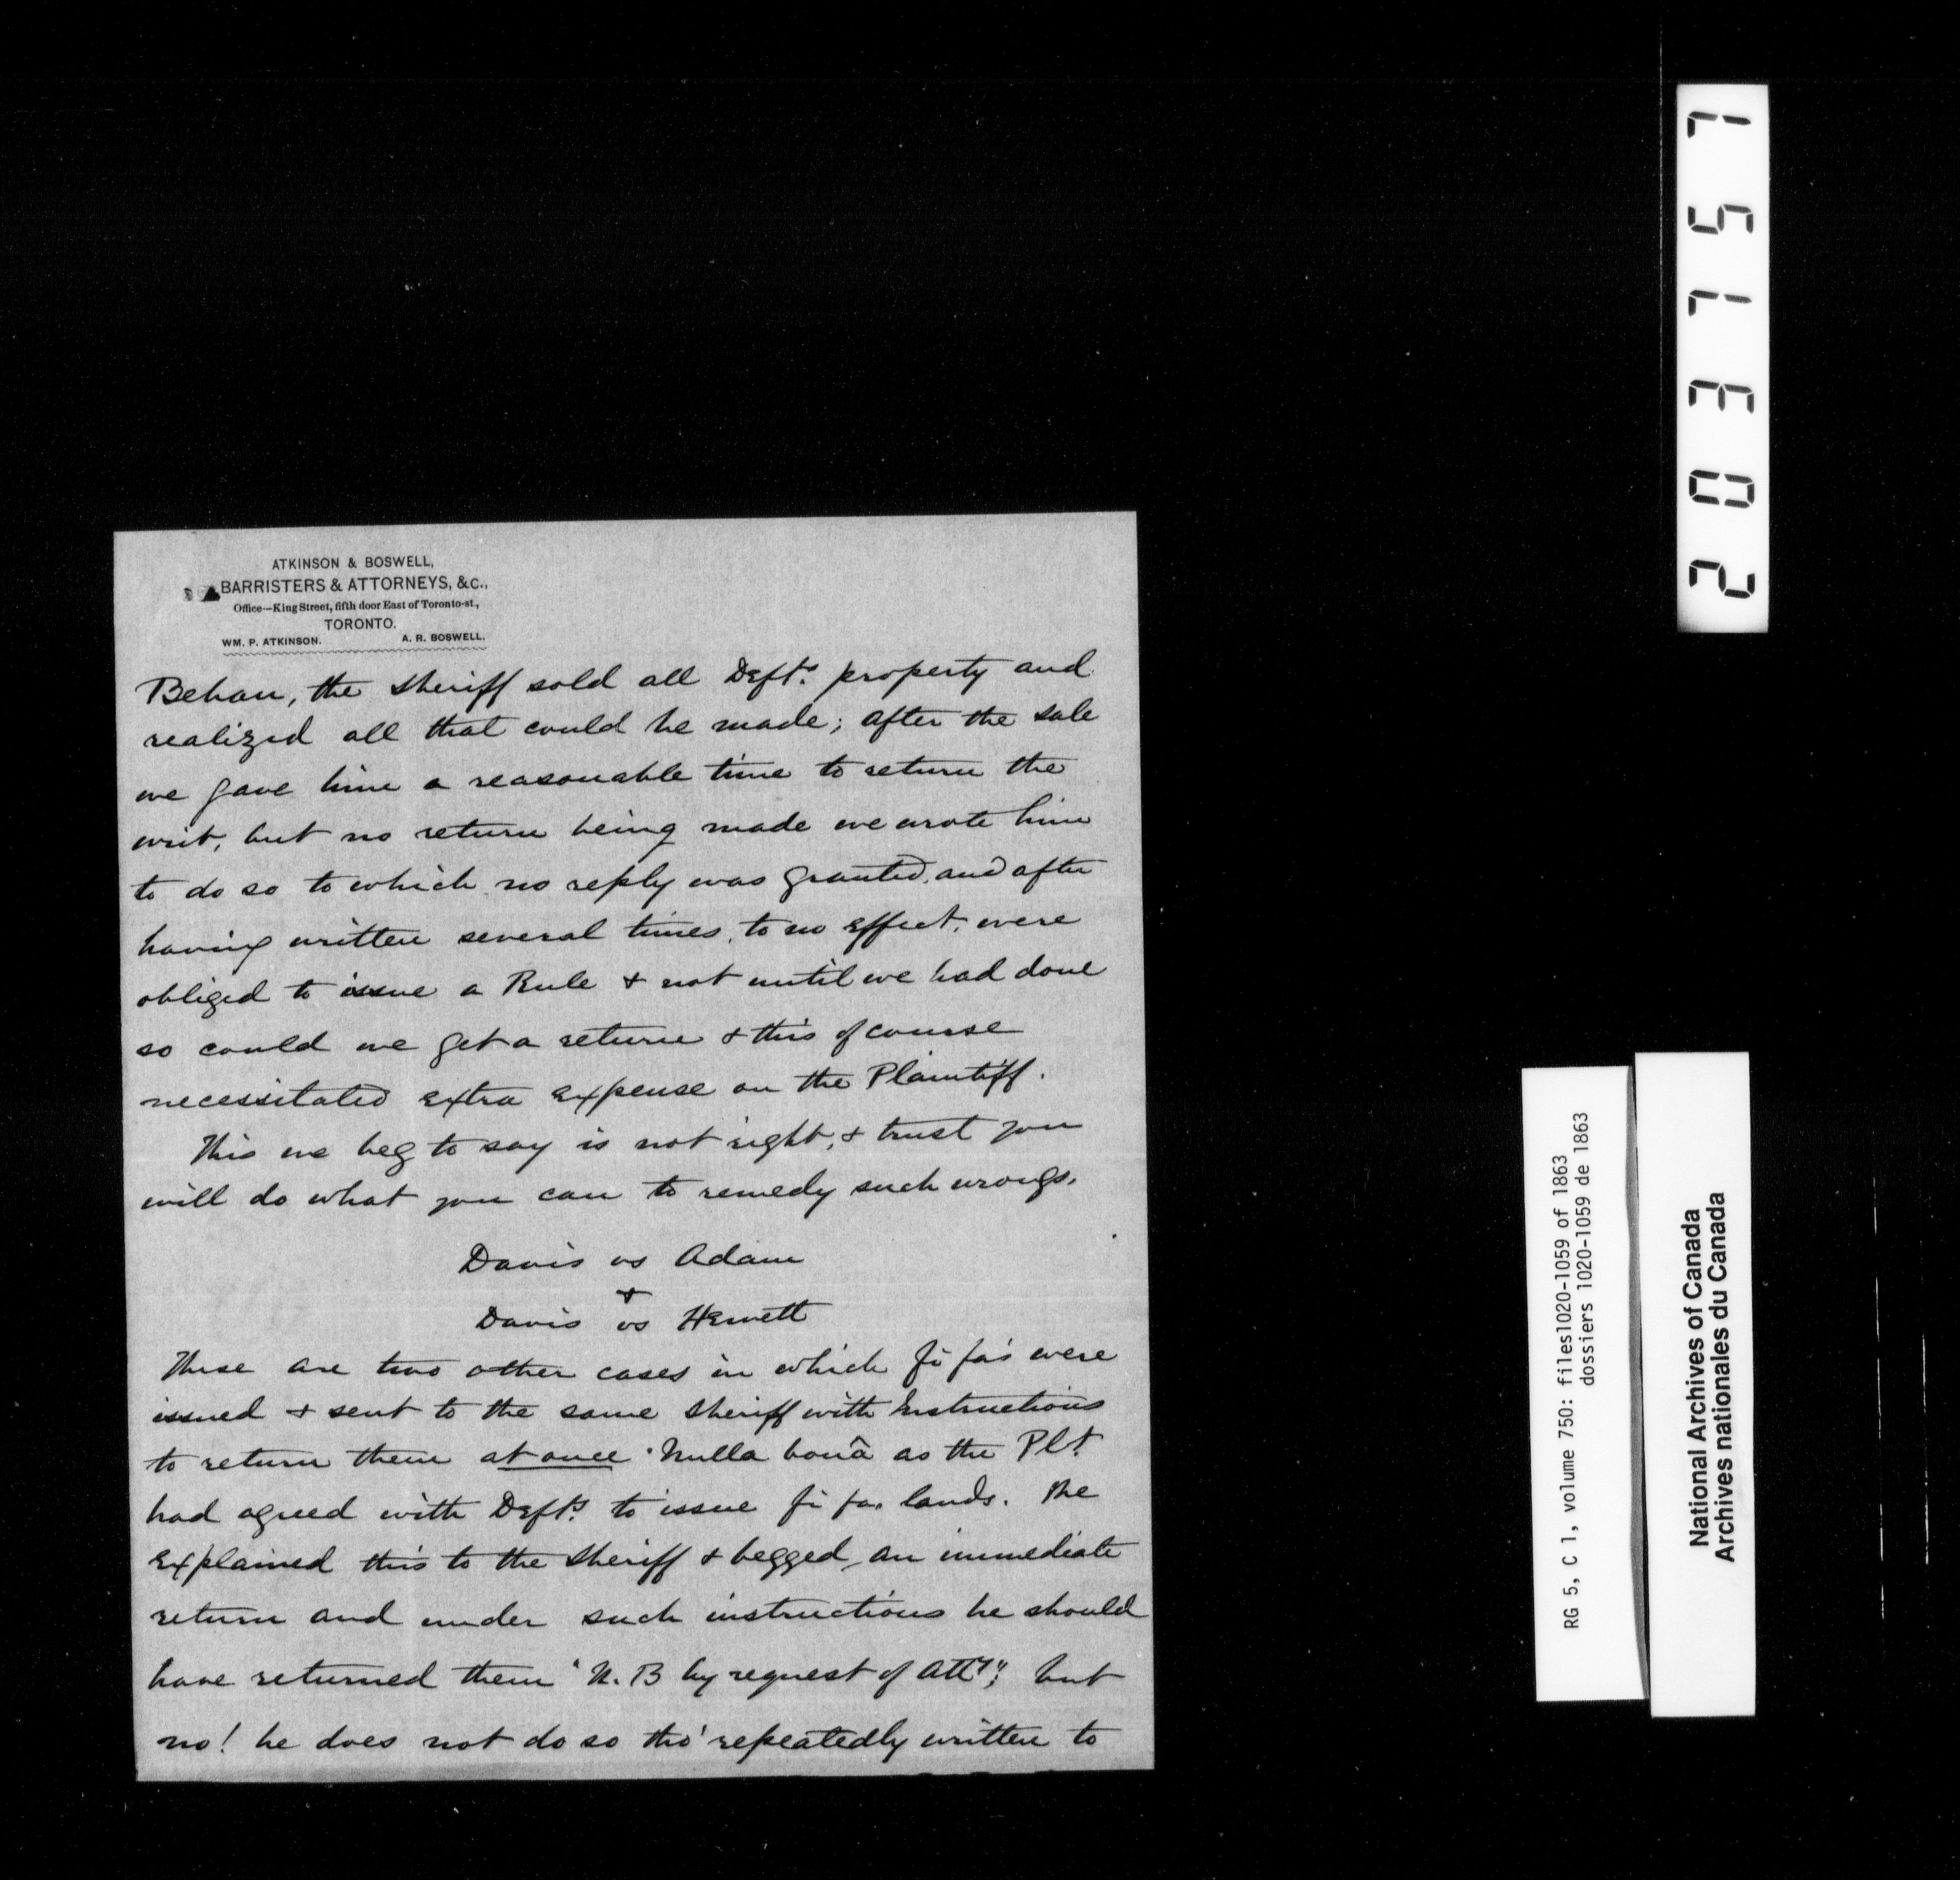 ATKINSON & BOSWELL,
BARRISTERS & ATTORNEYS, &c.,
Office—King Street, fifth door East of Toronto-st.,
TORONTO.
WM. P. ATKINSON. A. R. BOSWELL.
Behan, the Sheriff sold all Defts. property and
realized all that could be made; after the sale
we gave him a reasonable time to return the
writ, but no return being made we wrote him
to do so to which no reply was granted, and after
having written several times, to no effect, were
obliged to issue a Rule & not until we had done
so could we get a return & this of course
necessitated extra expense on the Plaintiff.
This we beg to say is not right, & trust you
will do what you can to remedy such wrongs.
Davis vs Adam
&
Davis vs Hewett
These are two other cases in which fi fa's were
issued & sent to the same Sheriff with Instructions
to return them at once "Nulla bonâ as the Plt.
had agreed with Defts. to issue fi fa. lands. We
explained this to the Sheriff & begged an immediate
return and under such instructions he should
have returned them "N. B by request of Atty"; but
no! he does not do so tho' repeatedly written to
203757
RG 5, C 1, volume 750: files1020-1059 of 1863
dossiers 1020-1059 de 1863
National Archives of Canada
Archives nationales du Canada